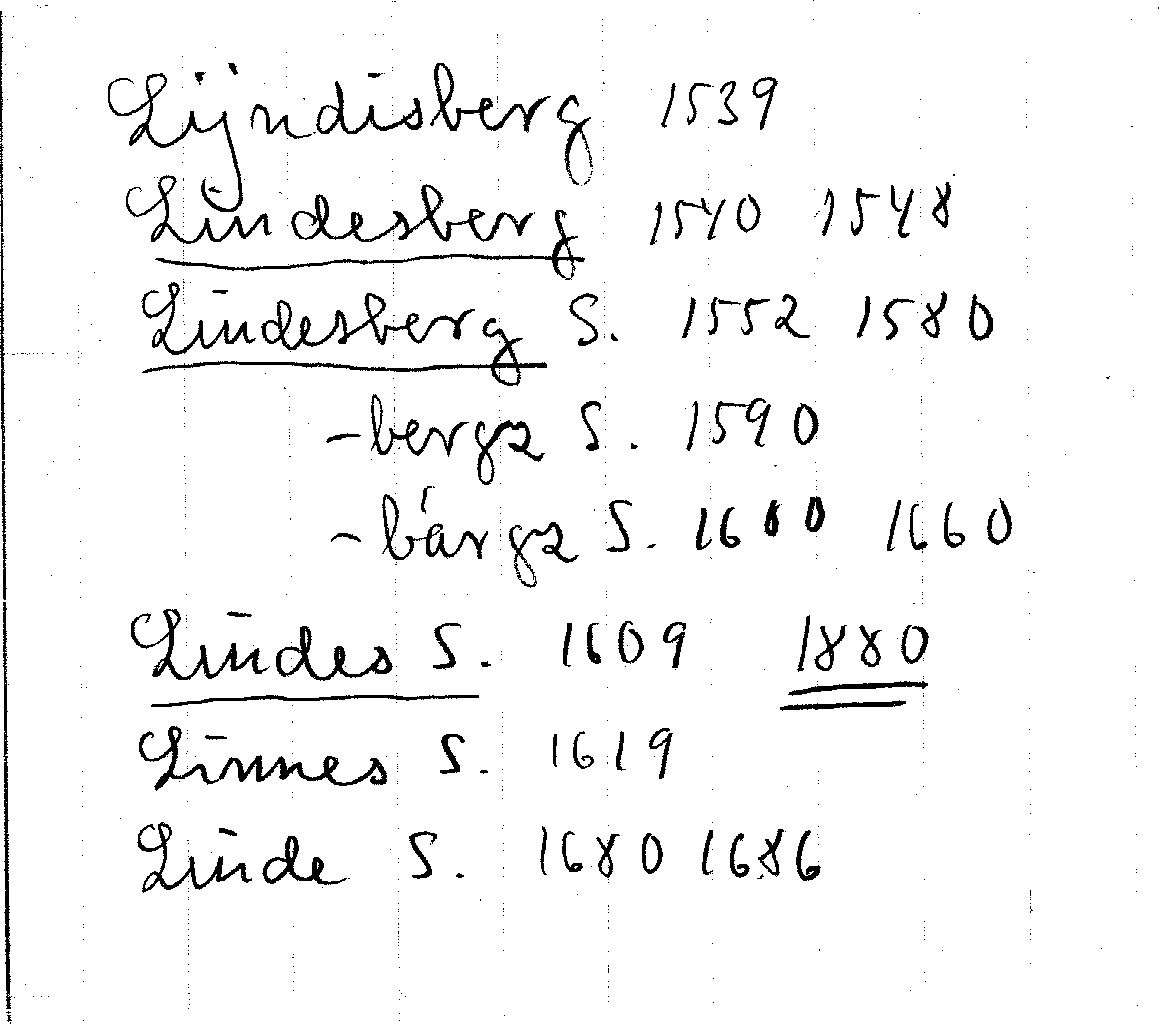 Lijndisberg 1539
Lindesberg 1540 1548
Lindesberg S. 1552 1580
-bergz S. 1590
-bärgz S. 1600 1660
Lindes S. 1609 1880
Linnes S. 1619
Linde S. 1680 1686